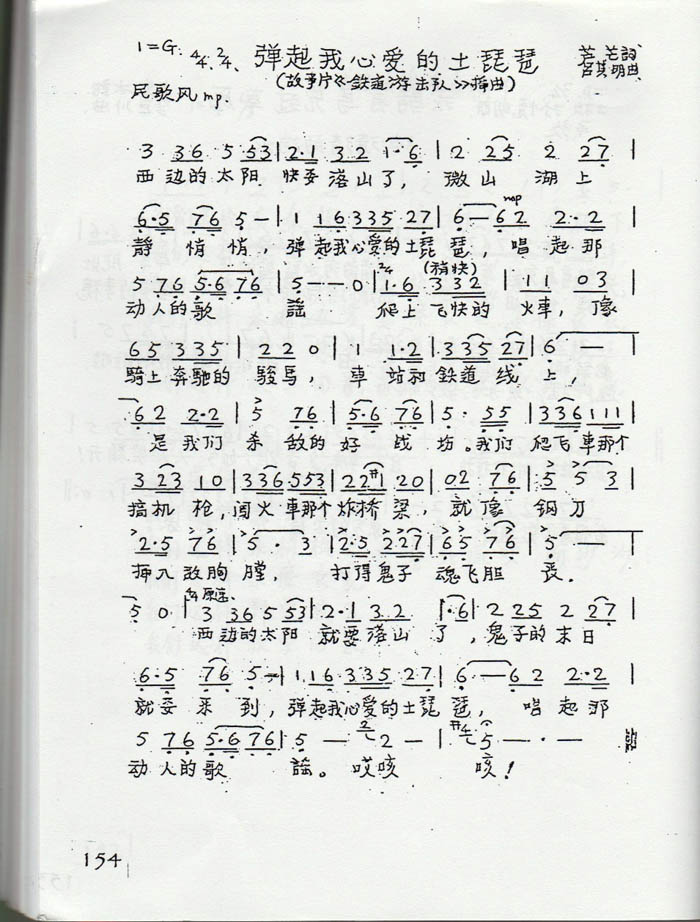 1=G 4/4 2/4 弹起我心爱的土琵琶 芦芒詞
(故事片《鉄道游击队》插曲) 吕其明曲
民歌风 mp.
3 36 5 53 | 2·1 32 1·6 | 2 25 2 27 |
西边的太阳 快要落山了, 微山湖上
6·5 76 5 — | 1 16 335 27 | 6 — 62 2·2 |
静悄悄, 弹起我心爱的土琵琶, 唱起那
5 76 5·6 76 | 5 — — 0 | 1·6 332 | 1 1 03 |
动人的歌謡 爬上飞快的火車, 像
(稍快)
65 335 | 22 0 | 1 1·2 | 335 27 | 6 — |
騎上奔馳的駿馬, 車站和鉄道线上!
62 2·2 | 5 76 | 5·6 76 | 5· 55 | 336 111 |
是我们杀敌的好战坊。我们爬飞車那个
323 10 | 336 553 | 22#1 20 | 02 76 | 5 5 3 |
搞机枪, 闯火車那个炸桥梁, 就像鋼刀
2·5 76 | 5 · 3 | 2·5 227 | 65 76 | 5 — |
插入敌胸膛, 打得鬼子魂飞胆丧.
5 0 | 3 36 5 53 | 2·1 3 2 | 1·6 | 2 25 2 27 |
西边的太阳就要落山了, 鬼子的末日
6·5 76 5 — | 1 16 335 27 | 6 — 62 2·2 |
就要来到, 弹起我心爱的土琵琶, 唱起那
5 76 5·6 76 | 5 — 2 — | #4 5 — · — ||
动人的歌謡。哎咳咳!
154